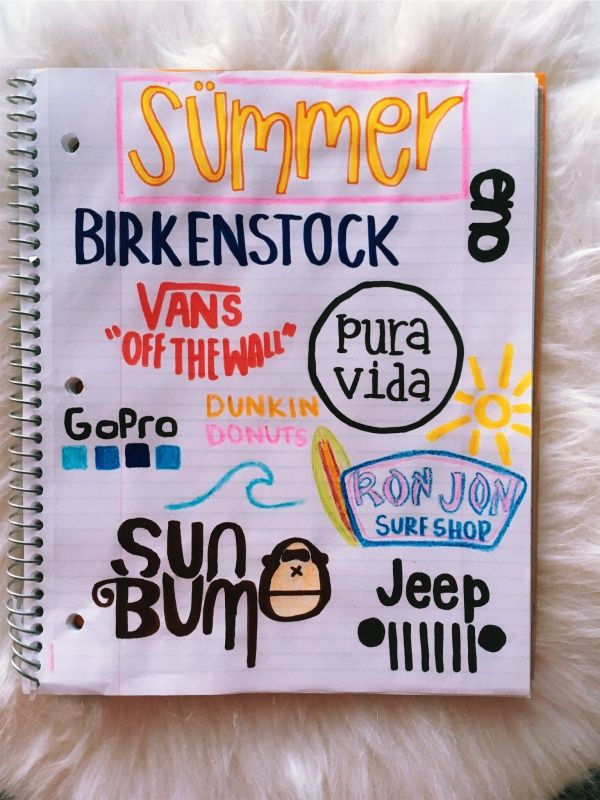 SümmeR
eno
BIRKENSTOCK
VANS
"OFF THE WALL"
pura
vida
GoPro
DUNKIN
DONUTS
RON JON
SURF SHOP
SUN
BUM
Jeep